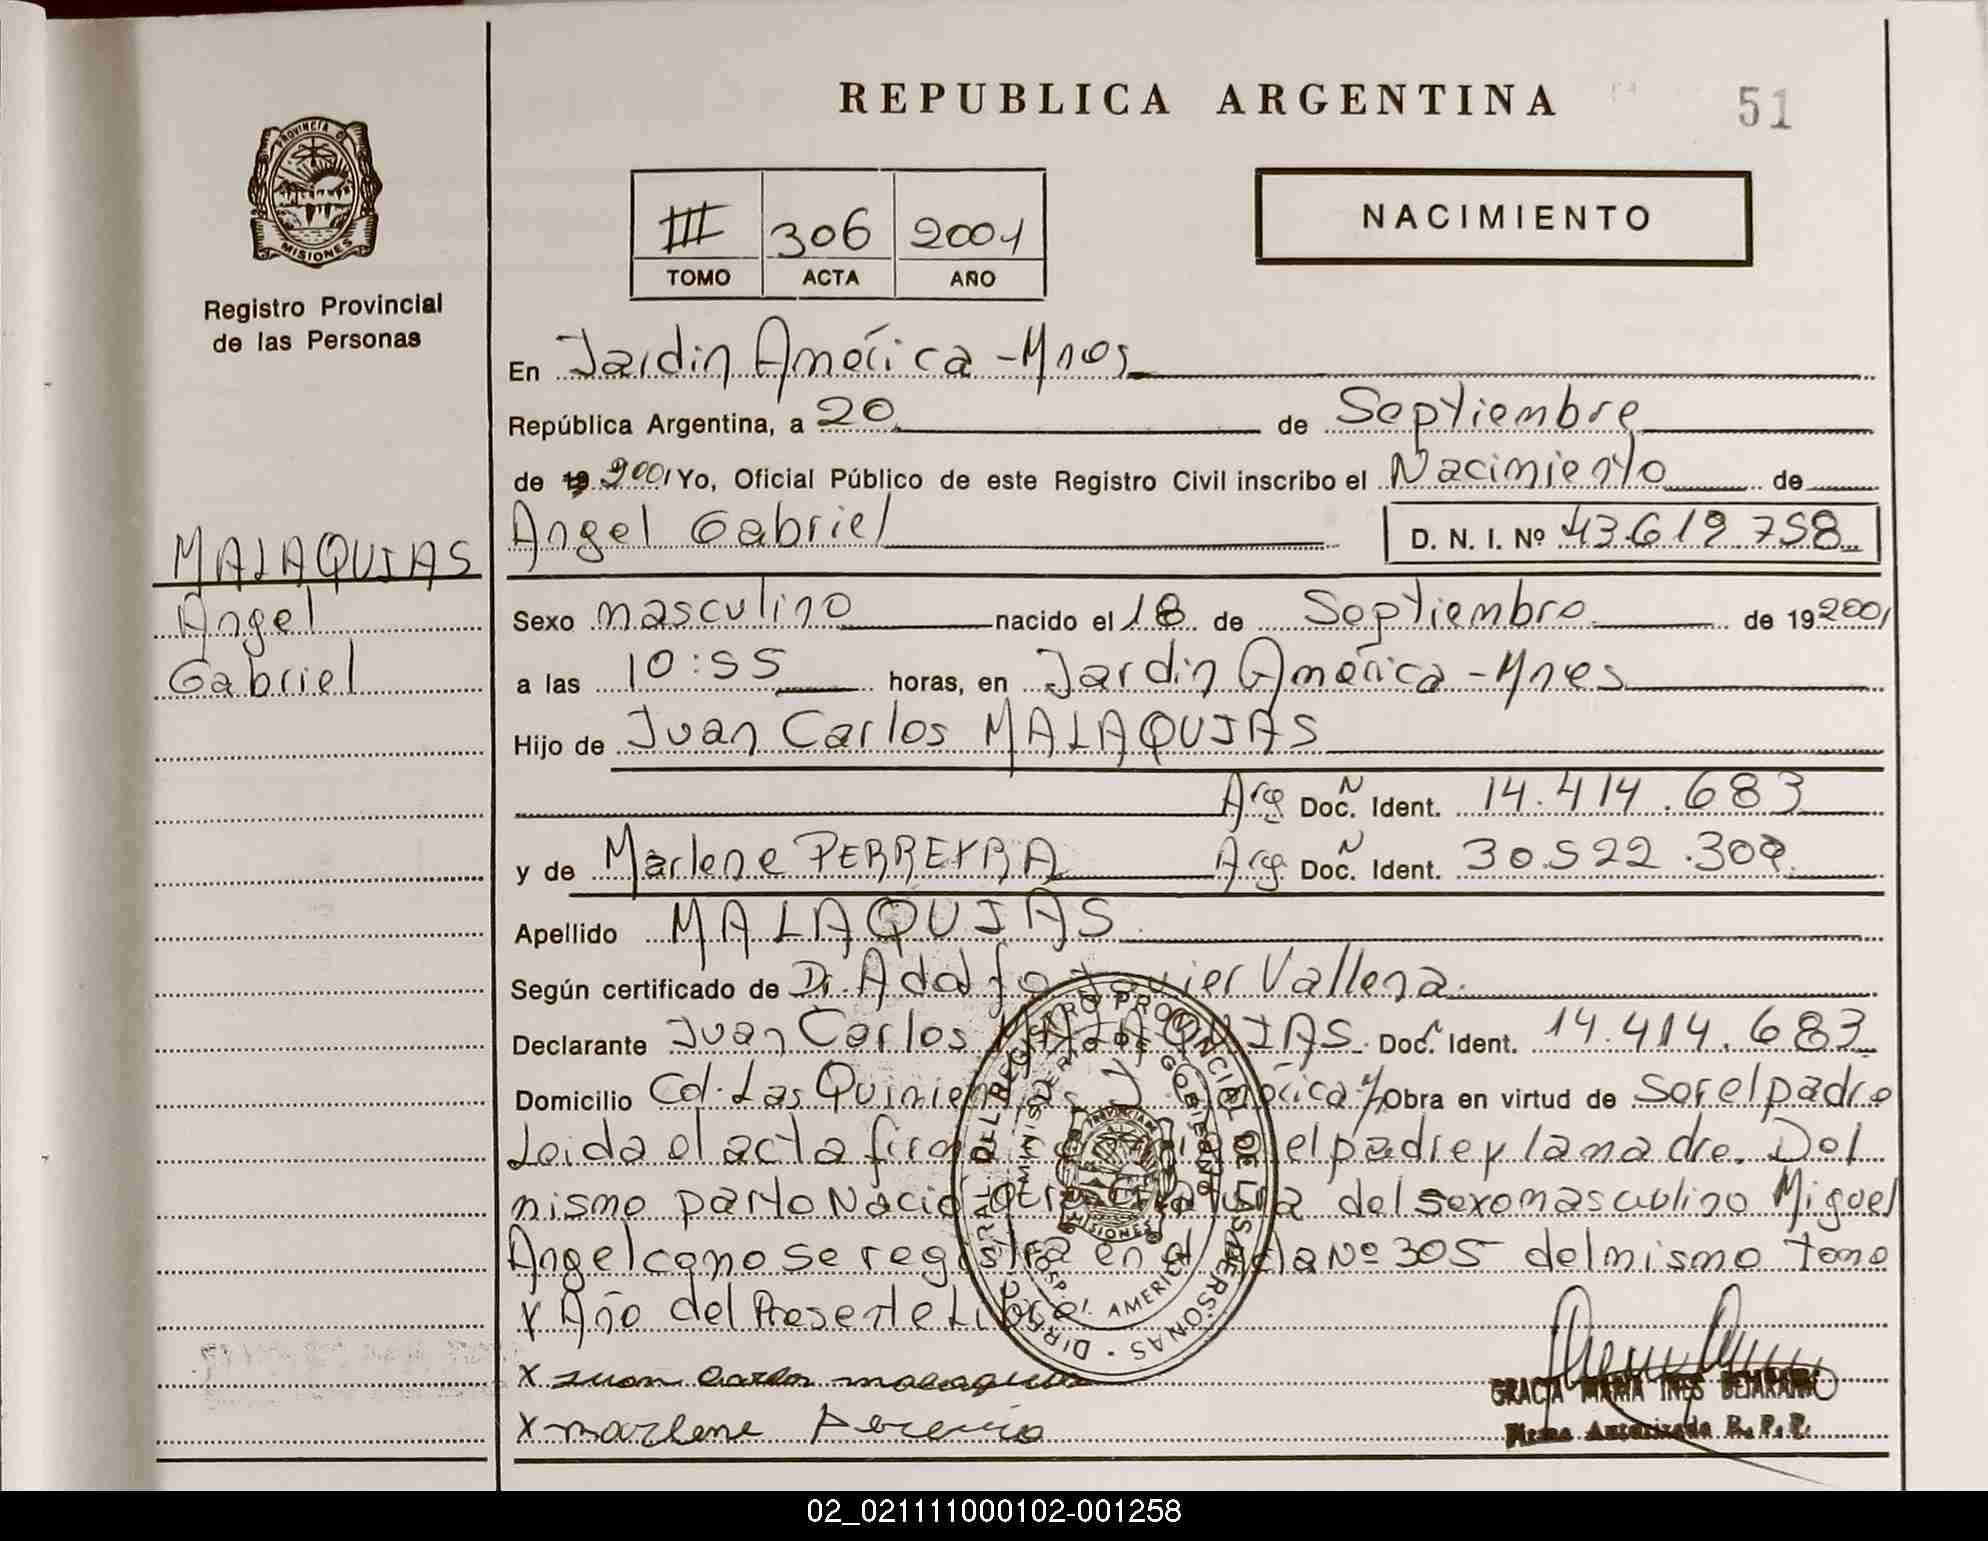 REPUBLICA ARGENTINA
51
PROVINCIA DE
MISIONES
Registro Provincial
de las Personas
III 306 2001
TOMO ACTA AÑO
NACIMIENTO
En Jardin América - Mnes
República Argentina, a 20 de Septiembre
de 19 2001 Yo, Oficial Público de este Registro Civil inscribo el Nacimiento de
MALAQUIAS
Angel
Gabriel
Angel Gabriel D. N. I. Nº 43.619.758
Sexo masculino nacido el 18 de Septiembre de 19 2001
a las 10:55 horas, en Jardin América - Mnes
Hijo de Juan Carlos MALAQUIAS
Arg Doc. N Ident. 14.414.683
y de Marlene PERREYRA Arg. Doc. N Ident. 30.522.302
Apellido MALAQUIAS
Según certificado de Dr. Adolfo Javier Vallena
Declarante Juan Carlos MALAQUIAS Doc. Ident. 14.414.683
Domicilio Cd. Las Quinientas J. América Obra en virtud de ser el padre
Leida el acta firma el padre y la madre. Del
mismo parto Nacio otra criatura del sexo masculino Miguel
Angel como se registra en el acta Nº 305 del mismo tomo
y Año del Presente Libro
x Juan Carlos malaquias
x marlene Pereira
DIREC. GRAL. DEL REGISTRO PROVINCIAL DE LAS PERSONAS
MINISTERIO DE GOBIERNO
HOSP. J. AMERICA
MISIONES
GRACIA MARIA INES BEJARANO
Firma Autorizada R. P. P.
02_021111000102-001258